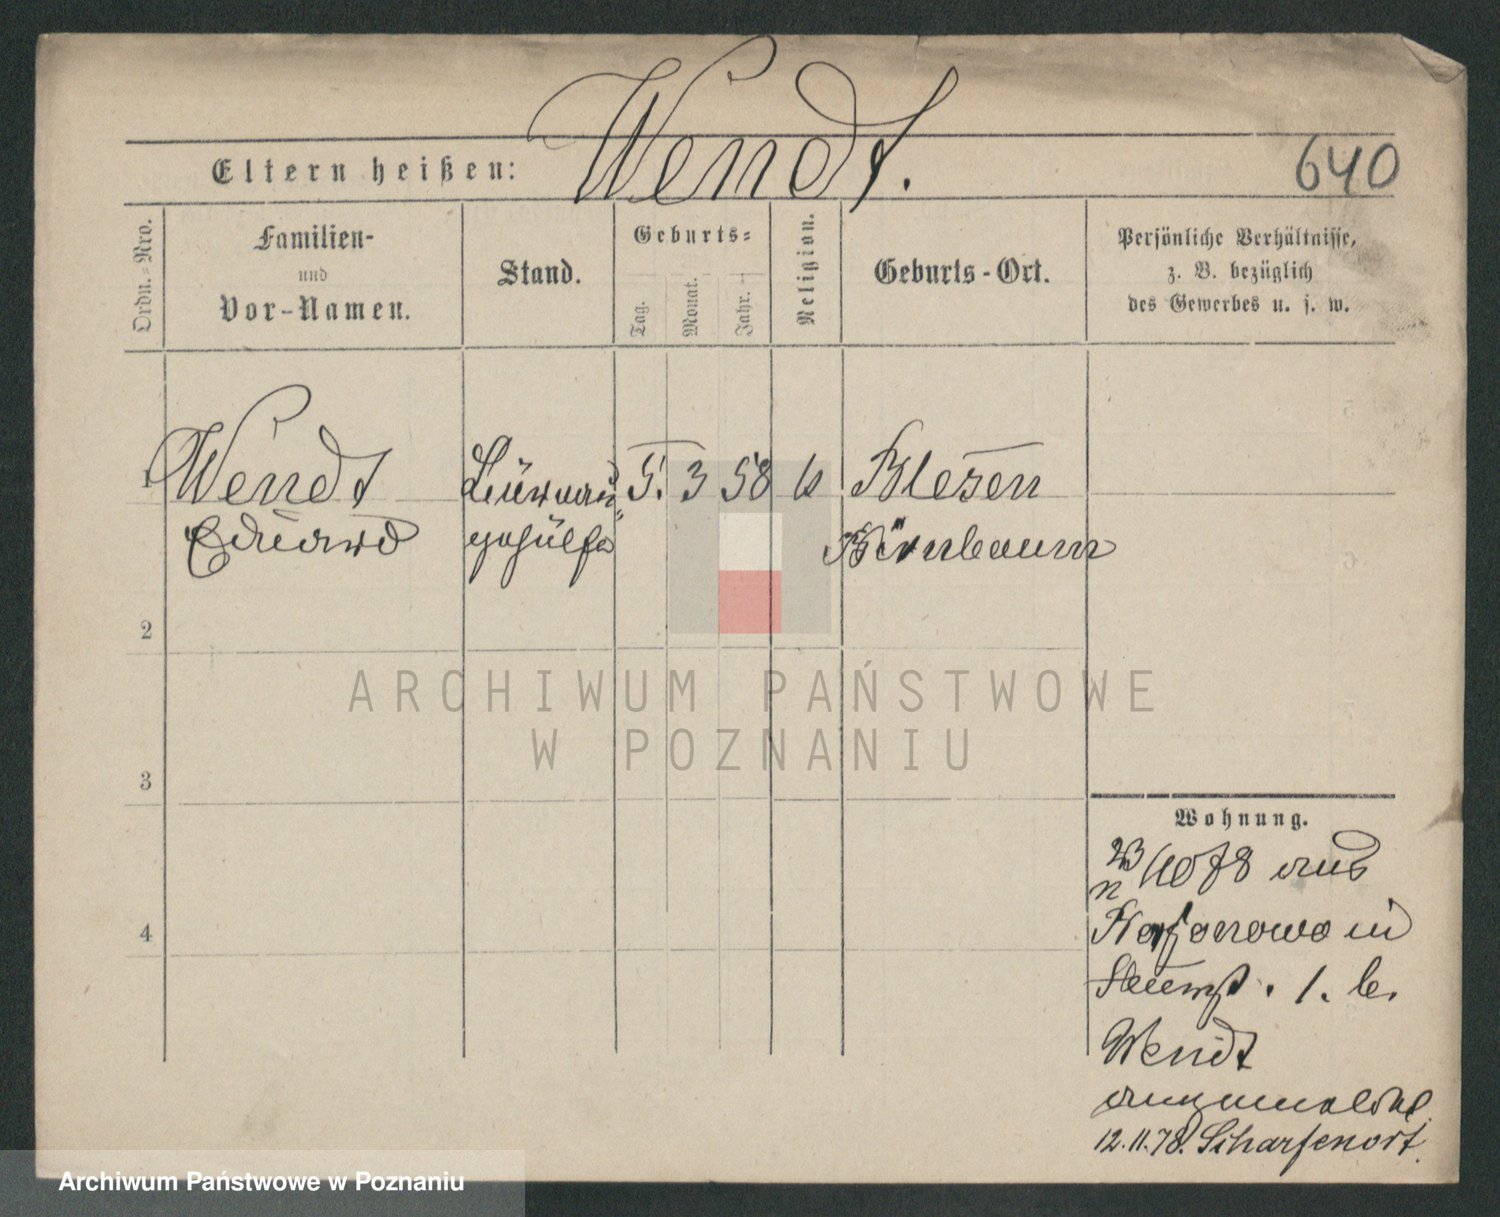 Wendt.
Eltern heißen:
640
Ordn.-Nro.
Familien-
und
Vor-Namen.
Stand.
Geburts-
Tag.
Monat.
Jahr.
Religion.
Geburts-Ort.
Persönliche Verhältnisse,
z. B. bezüglich
des Gewerbes u. s. w.
1
Wendt
Eduard
gehülfe
5. 3 58
Blesen
Birnbaum
2
3
4
Wohnung.
aus
in
1. b.
Wendt
angemeldet
12.11.78. Scharfenort.
ARCHIWUM PAŃSTWOWE
W POZNANIU
Archiwum Państwowe w Poznaniu